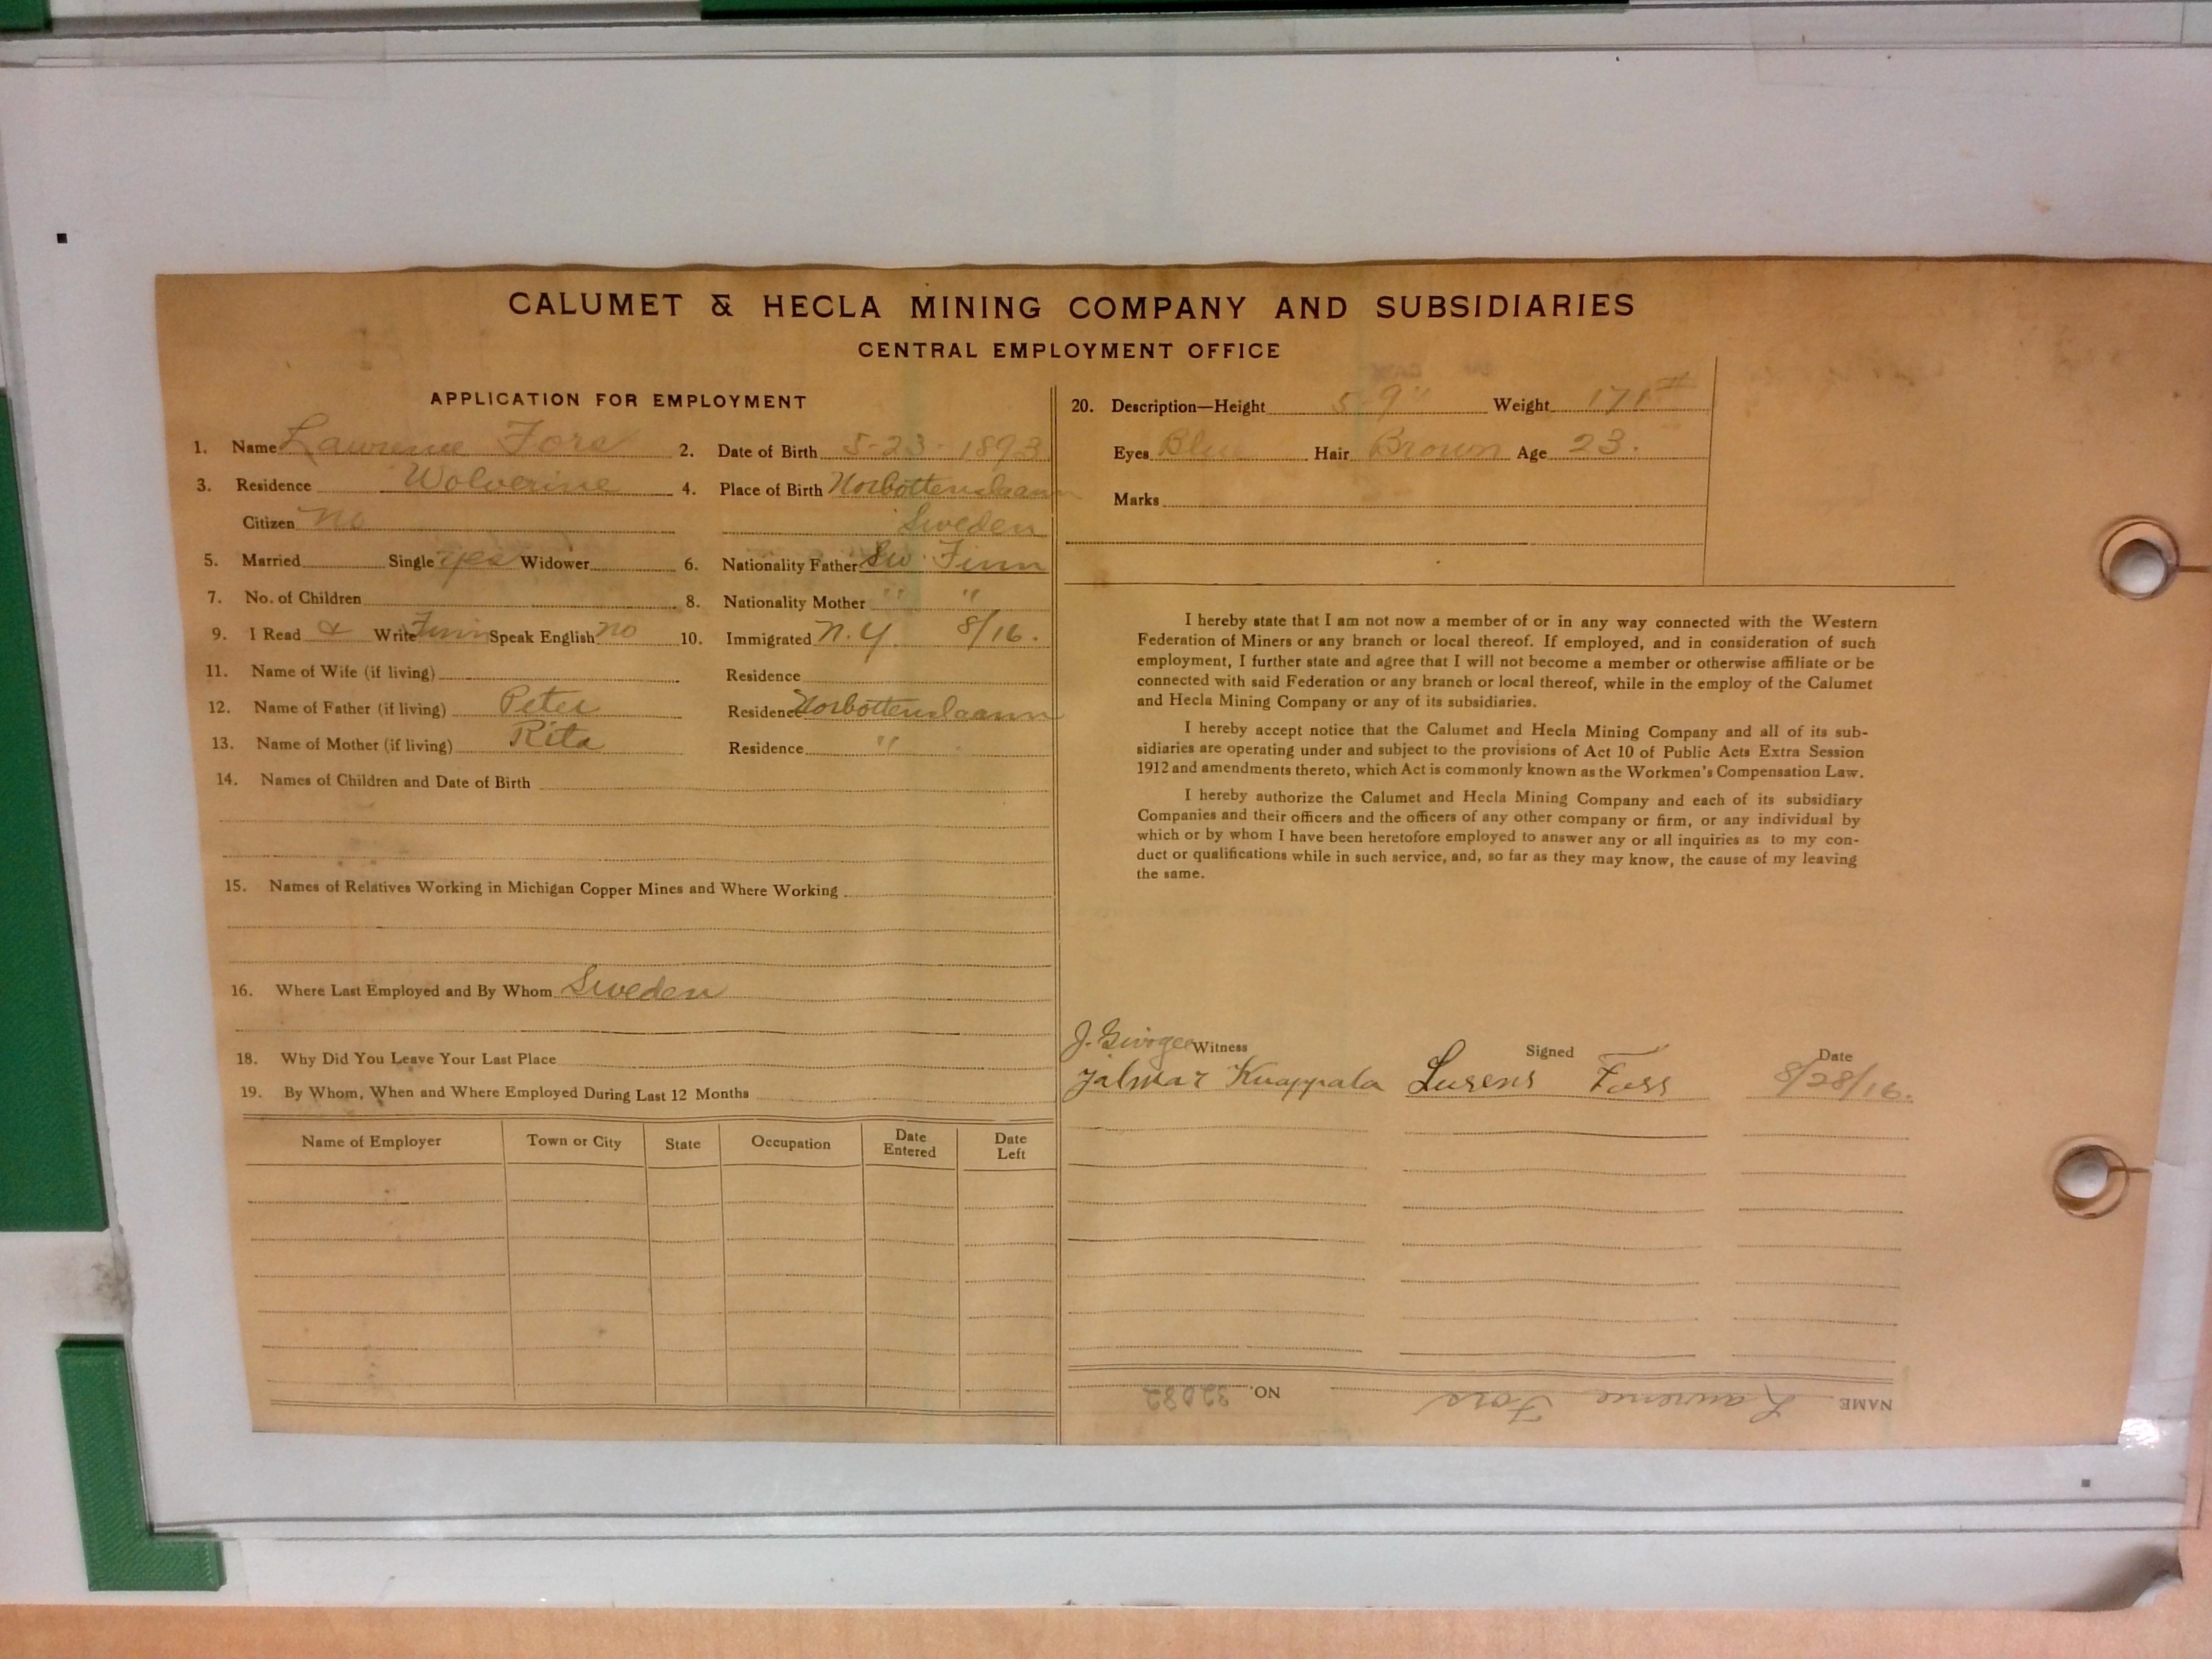 CALUMET & HECLA MINING COMPANY AND SUBSIDIARIES
CENTRAL EMPLOYMENT OFFICE
APPLICATION FOR EMPLOYMENT
1. Name Lawrence Fors 2. Date of Birth 5-23-1893
3. Residence Wolverine 4. Place of Birth Norbottenslaann
Citizen No Sweden
5. Married Single yes Widower 6. Nationality Father Sw. Finn
7. No. of Children 8. Nationality Mother " "
9. I Read & Write Finn Speak English no 10. Immigrated N.Y. 8/16.
11. Name of Wife (if living) Residence
12. Name of Father (if living) Peter Residence Norbottenslaann
13. Name of Mother (if living) Rita Residence "
14. Names of Children and Date of Birth
15. Names of Relatives Working in Michigan Copper Mines and Where Working
16. Where Last Employed and By Whom Sweden
18. Why Did You Leave Your Last Place
19. By Whom, When and Where Employed During Last 12 Months
Name of Employer Town or City State Occupation Date Entered Date Left
20. Description—Height 5-9" Weight 171#
Eyes Blue Hair Brown Age 23.
Marks
I hereby state that I am not now a member of or in any way connected with the Western
Federation of Miners or any branch or local thereof. If employed, and in consideration of such
employment, I further state and agree that I will not become a member or otherwise affiliate or be
connected with said Federation or any branch or local thereof, while in the employ of the Calumet
and Hecla Mining Company or any of its subsidiaries.
I hereby accept notice that the Calumet and Hecla Mining Company and all of its sub-
sidiaries are operating under and subject to the provisions of Act 10 of Public Acts Extra Session
1912 and amendments thereto, which Act is commonly known as the Workmen's Compensation Law.
I hereby authorize the Calumet and Hecla Mining Company and each of its subsidiary
Companies and their officers and the officers of any other company or firm, or any individual by
which or by whom I have been heretofore employed to answer any or all inquiries as to my con-
duct or qualifications while in such service, and, so far as they may know, the cause of my leaving
the same.
J. Witness Signed Date
Jalmar Knappala Lurens Fors 8/28/16.
NAME Lawrence Fors NO. 32082